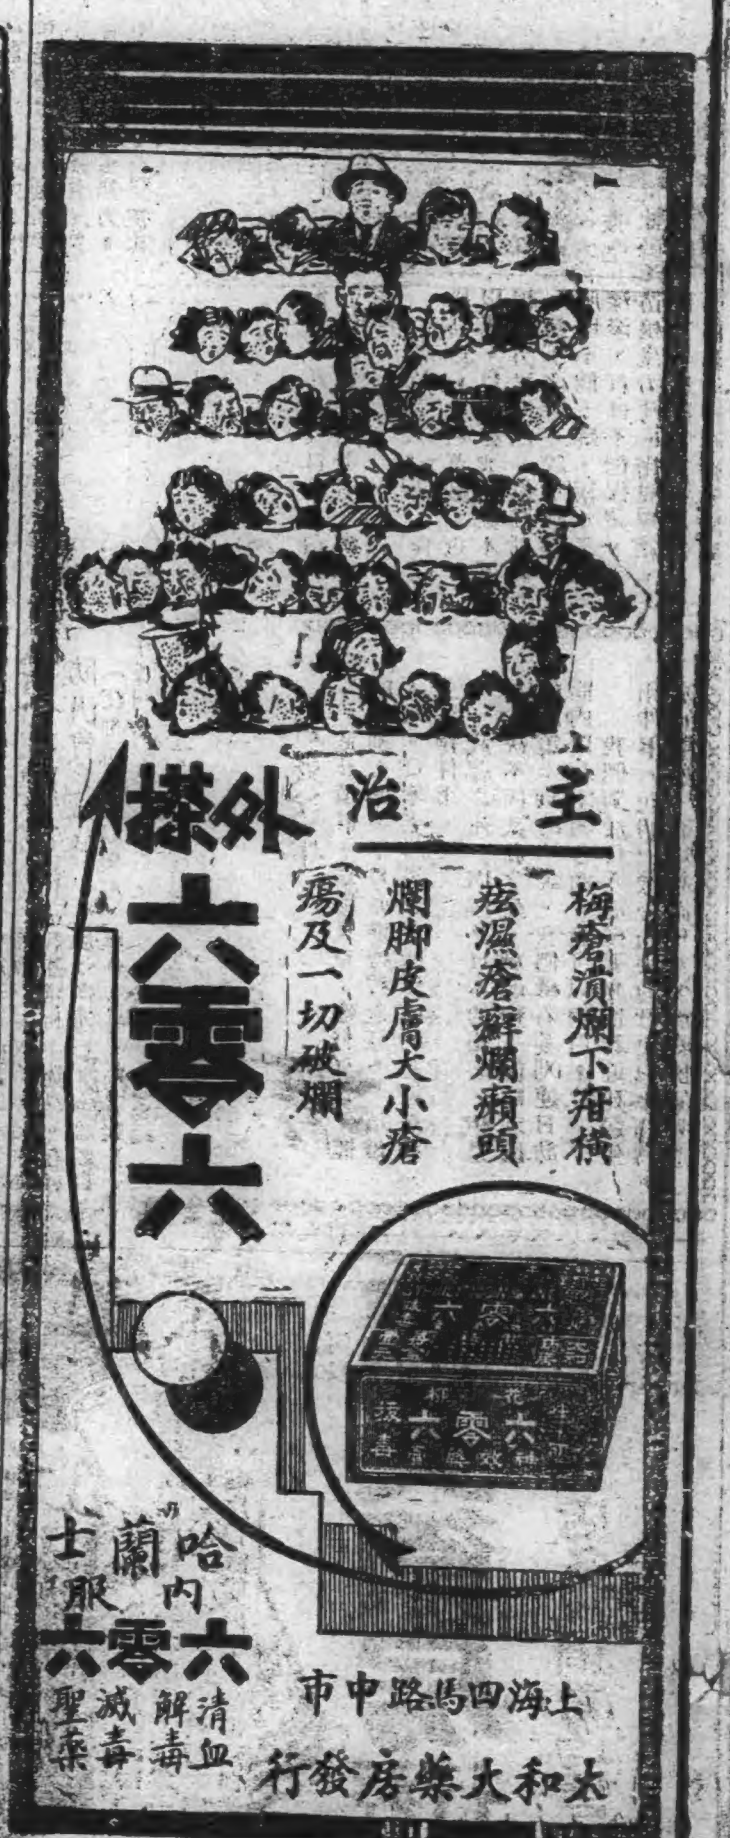 主治
梅瘡潰爛下疳橫
痃濕瘡癬爛癩頭
爛脚皮膚大小瘡
瘍及一切破爛
外搽
六零六
六零六
花柳
六零六
拔毒
哈蘭士
内服
六零六
清血
解毒
滅毒
聖藥
上海四馬路中市
太和大藥房發行